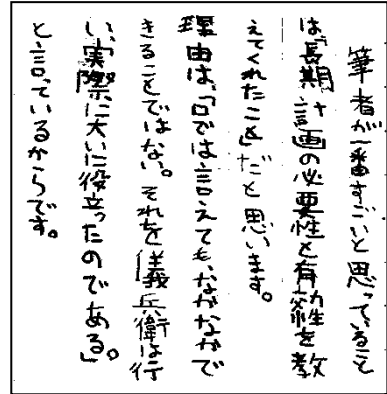 筆者が一番すごいと思っていること
は「長期計画の必要性と有効性を教
えてくれたこと」だと思います。
理由は、「口では言えても、なかなかで
きることではない。それを儀兵衛は行
い、実際に大いに役立ったのである」
と言っているからです。